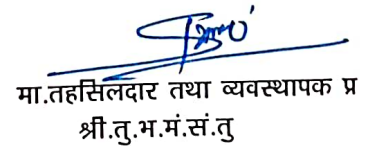 मा.तहसिलदार तथा व्यवस्थापक प्र
श्री.तु.भ.मं.सं.तु